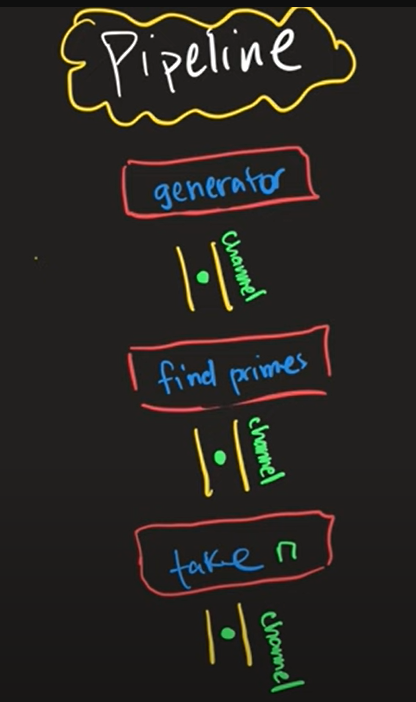 Pipeline
generator
channel
find primes
channel
take n
channel